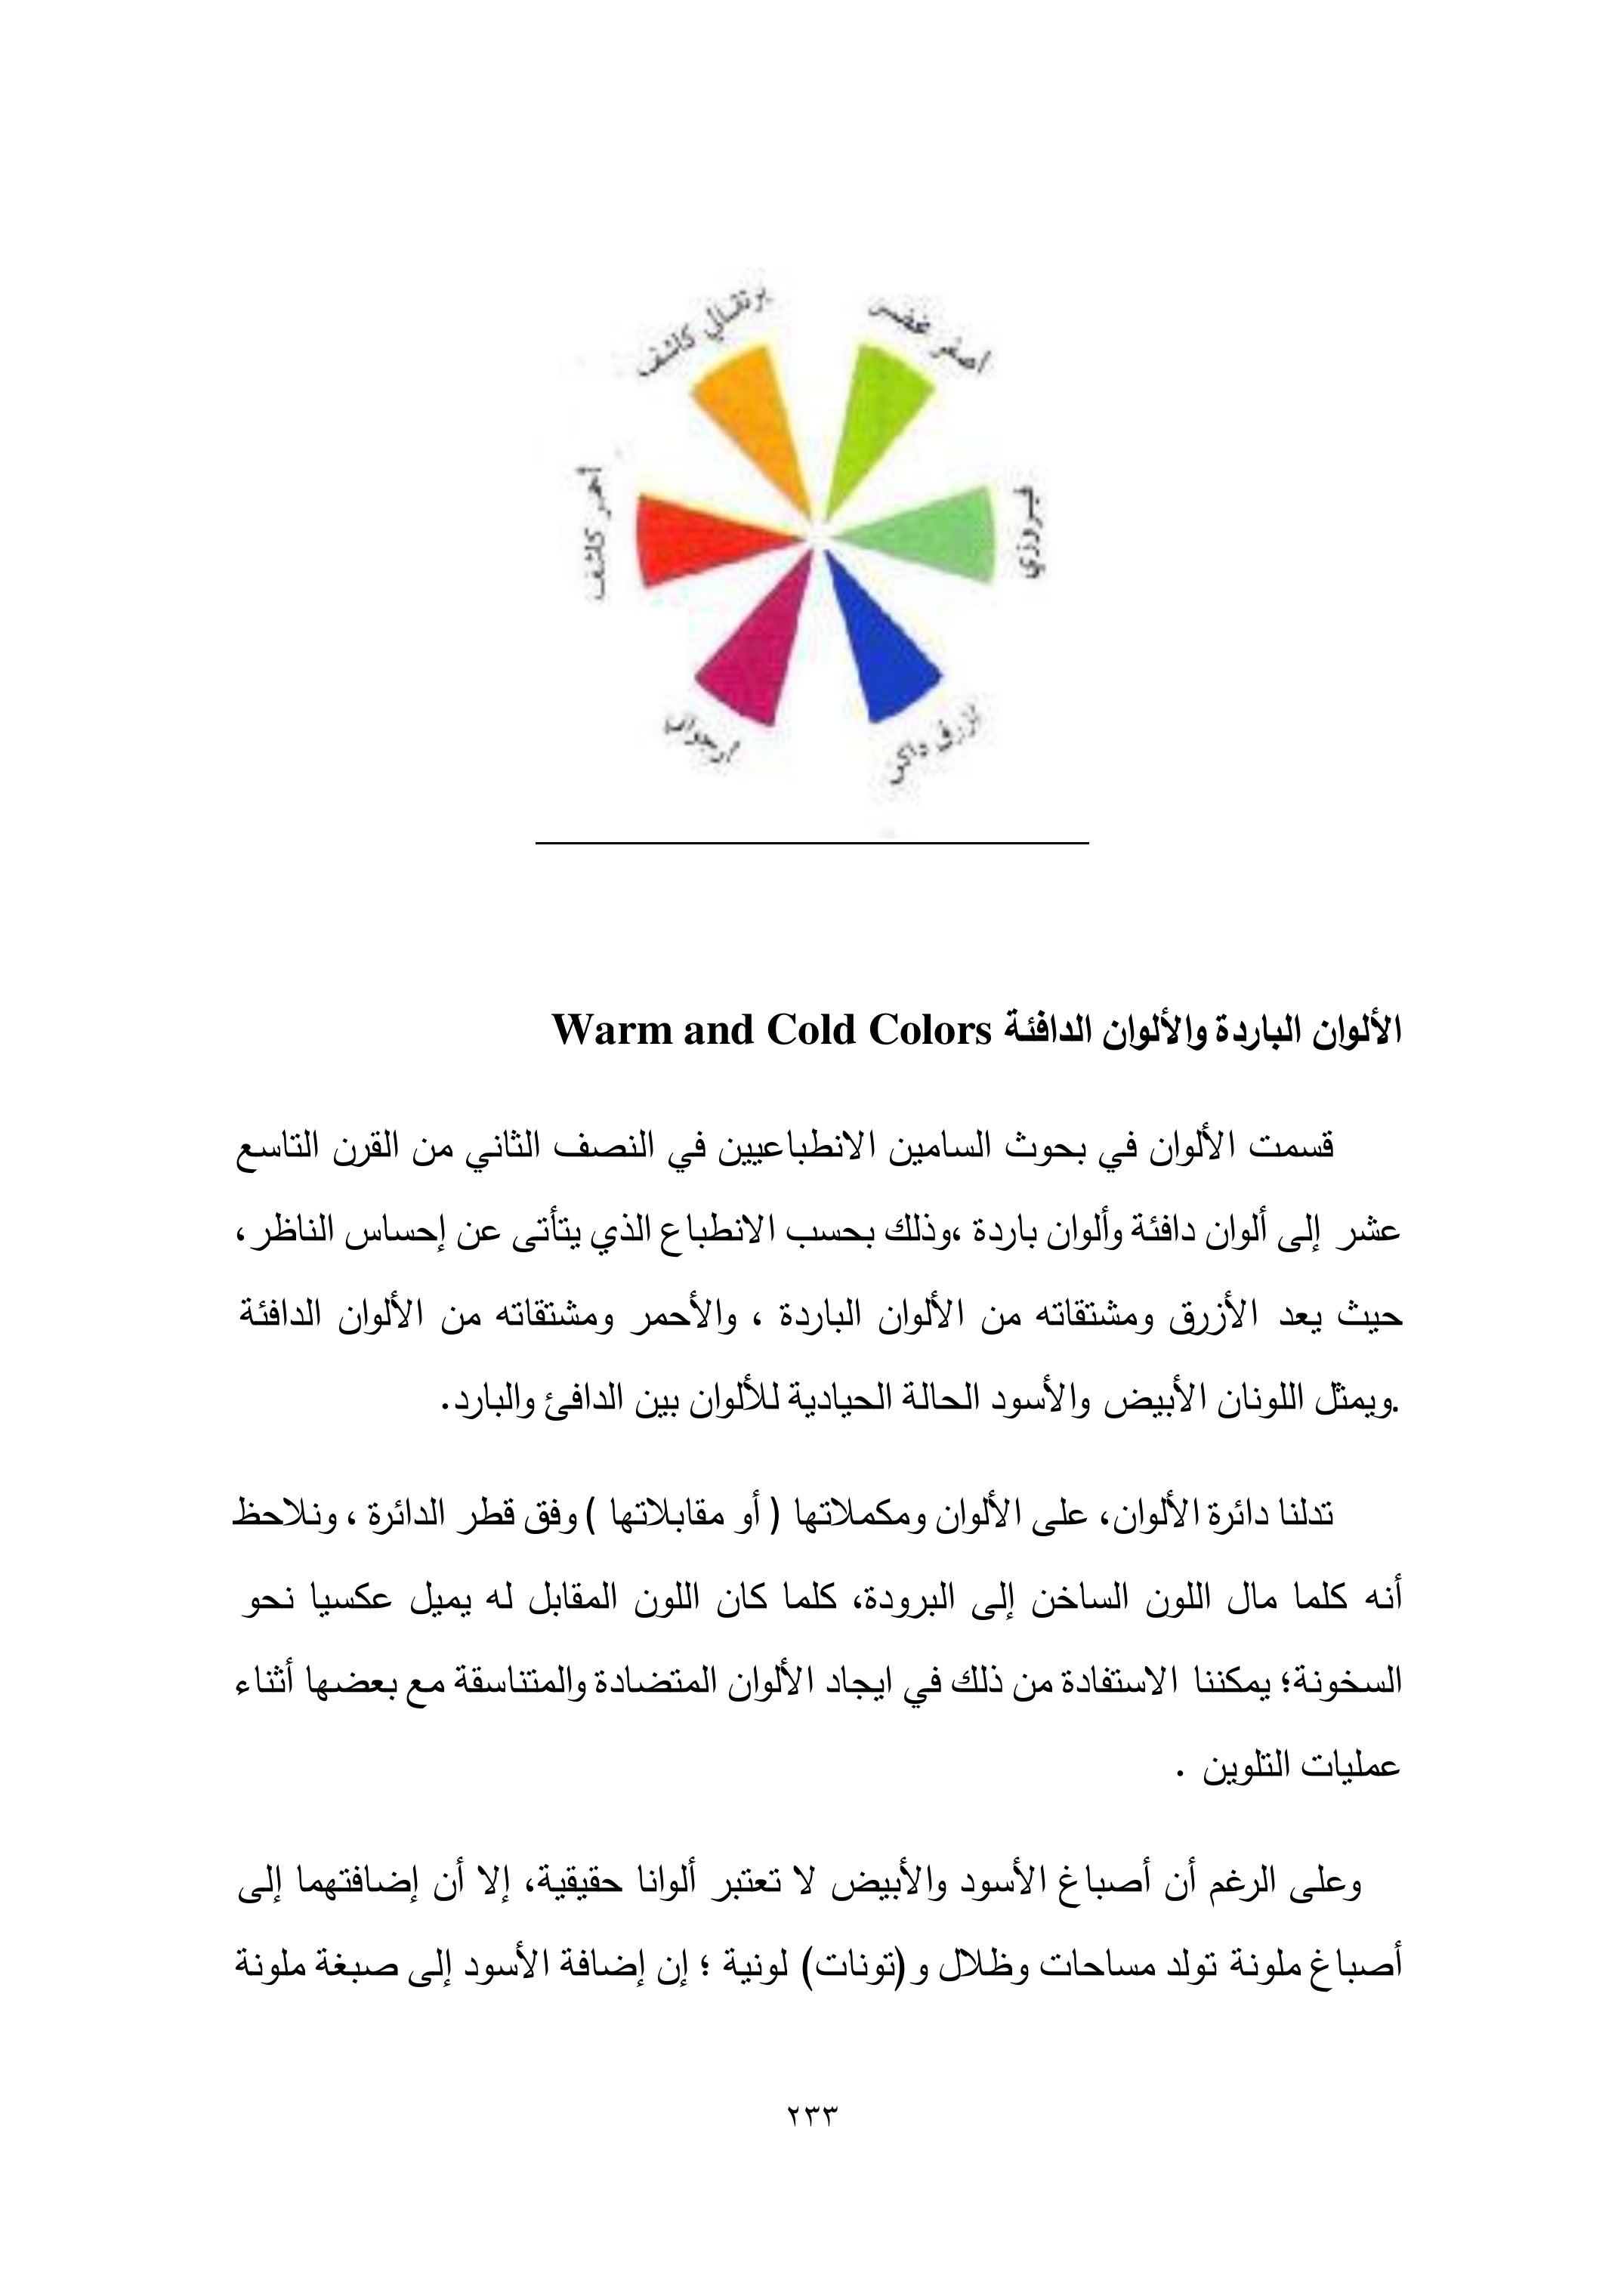 برتقالي كاشف
اصفر غضس
أحمر كاشف
فيروزي
أرجواني
ازرق داكن
الألوان الباردة والألوان الدافئة Warm and Cold Colors
قسمت الألوان في بحوث السامين الانطباعيين في النصف الثاني من القرن التاسع
عشر إلى ألوان دافئة وألوان باردة ،وذلك بحسب الانطباع الذي يتأتى عن إحساس الناظر ،
حيث يعد الأزرق ومشتقاته من الألوان الباردة ، والأحمر ومشتقاته من الألوان الدافئة
.ويمثل اللونان الأبيض والأسود الحالة الحيادية للألوان بين الدافئ والبارد.
تدلنا دائرة الألوان، على الألوان ومكملاتها ( أو مقابلاتها ) وفق قطر الدائرة ، ونلاحظ
أنه كلما مال اللون الساخن إلى البرودة، كلما كان اللون المقابل له يميل عكسيا نحو
السخونة؛ يمكننا الاستفادة من ذلك في ايجاد الألوان المتضادة والمتناسقة مع بعضها أثناء
عمليات التلوين .
وعلى الرغم أن أصباغ الأسود والأبيض لا تعتبر ألوانا حقيقية، إلا أن إضافتهما إلى
أصباغ ملونة تولد مساحات وظلال و(تونات) لونية ؛ إن إضافة الأسود إلى صبغة ملونة
٢٣٣